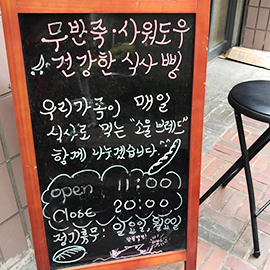 무반죽·사워도우
건강한 식사 빵
우리가족이 매일
식사로 먹는 "소울브레드"
함께 나누겠습니다
open 11:00
Close 20:00
정기휴무: 일요일, 월요일